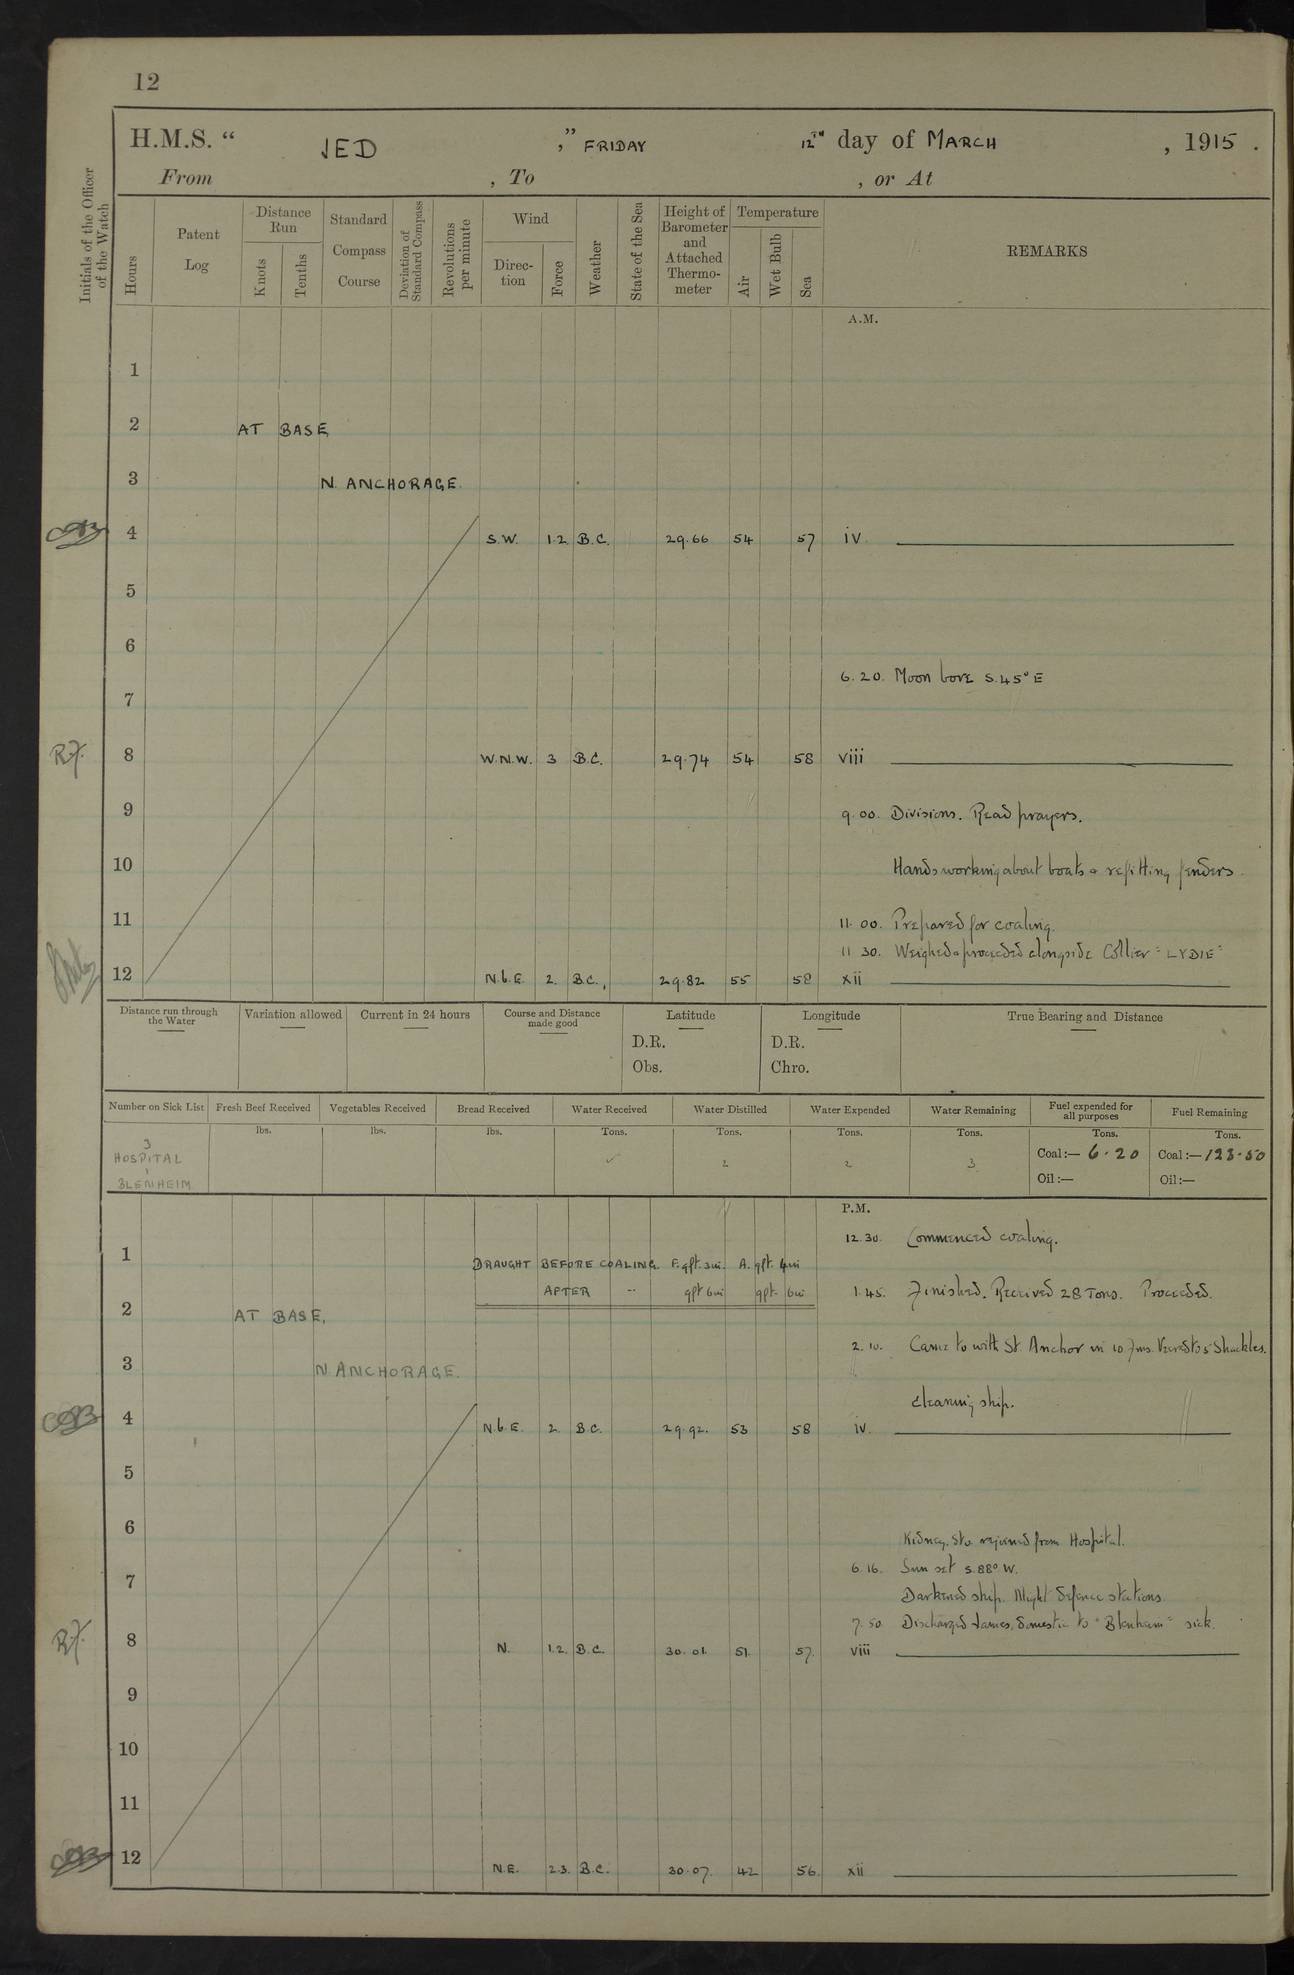 12
H.M.S. “ JED ,” FRIDAY 12TH day of MARCH , 1915 .
From , To , or At
Initials of the Officer of the Watch
Hours
Patent Log
Distance Run
Knots
Tenths
Standard Compass Course
Deviation of Standard Compass
Revolutions per minute
Wind
Direc-tion
Force
Weather
State of the Sea
Height of Barometer and Attached Thermo-meter
Temperature
Air
Wet Bulb
Sea
REMARKS
A.M.
1
2 AT BASE,
3 N. ANCHORAGE.
4 S.W. 1.2. B.C. 29.66 54 57 iv.
5
6
6.20. Moon bore S.45° E
7
R.J. 8 W.N.W. 3 B.C. 29.74 54 58 viii
9 9.00. Divisions. Read prayers.
10 Hands working about boats & refitting fenders.
11 11.00. Prepared for coaling.
11 30. Weighed & proceeded alongside Collier "LYDIE"
12 N.b.E. 2. B.C., 29.82 55 58 xii
Distance run through the Water
Variation allowed
Current in 24 hours
Course and Distance made good
Latitude
D.R.
Obs.
Longitude
D.R.
Chro.
True Bearing and Distance
Number on Sick List
Fresh Beef Received
Vegetables Received
Bread Received
Water Received
Water Distilled
Water Expended
Water Remaining
Fuel expended for all purposes
Fuel Remaining
lbs. lbs. lbs. Tons. Tons. Tons. Tons. Tons. Tons.
3 HOSPITAL
1 BLENHEIM
2 2 3
Coal:— 6.20 Coal:— 123.50
Oil:— Oil:—
P.M.
12.30. Commenced coaling.
1 DRAUGHT BEFORE COALING F. 9ft. 3in. A. 9ft. 4in
AFTER " 9ft 6in 9ft. 6in 1.45. Finished. Received 28 Tons. Proceeded.
2 AT BASE,
2.10. Came to with St. Anchor in 10 fms. Veered to 5 Shackles.
3 N. ANCHORAGE.
Cleaning ship.
4 N.b.E. 2. B.C. 29.92. 53 58 iv.
5
6
Kidney. Sto. rejoined from Hospital.
6.16. Sun set S.88° W.
7
Darkened ship. Night defence stations.
7.50 Discharged James, domestic to "Blenheim" sick.
R.J. 8 N. 1.2. B.C. 30.01. 51. 57. viii
9
10
11
12 N.E. 2.3. B.C. 30.07. 42 56. xii